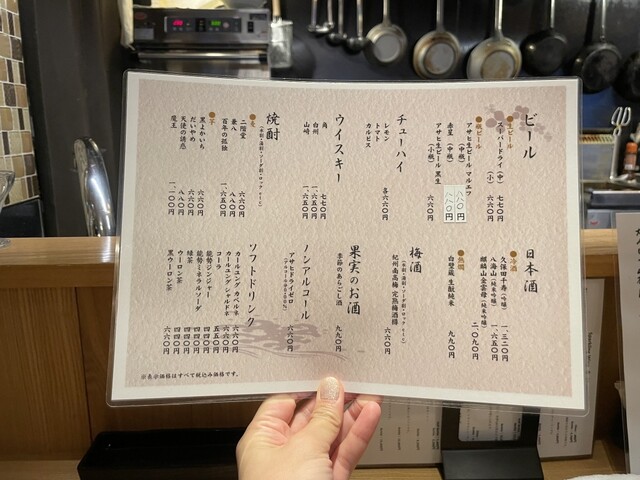 ビール
スーパードライ（中） 七七〇円
（小） 六六〇円
アサヒ生ビール マルエフ
（中瓶） 八八〇円
赤星（中瓶） 八八〇円
アサヒ生ビール 黒生
（小瓶） 六六〇円
チューハイ
レモン
トマト
カルピス
各六六〇円
ウイスキー
角 七七〇円
白州 一、六五〇円
山崎 一、六五〇円
焼酎
●麦
二階堂 六六〇円
兼八 八八〇円
百年の孤独 一、六五〇円
●芋
黒よかいち 六六〇円
だいやめ 六六〇円
天使の誘惑 八八〇円
魔王 一、一〇〇円
日本酒
●冷酒
久保田千寿（吟醸） 一、三二〇円
八海山（純米吟醸） 一、六五〇円
麒麟山金雲母（純米吟醸） 二、〇九〇円
●熱燗
白鷺蔵 生酛純米 九九〇円
梅酒
紀州南高梅 完熟梅酒膳 六六〇円
果実のお酒
季節のあらごし酒 九九〇円
ノンアルコール
アサヒドライゼロ 六六〇円
ソフトドリンク
カールユング カベルネ 六六〇円
カールユング シャルドネ 六六〇円
コーラ 五五〇円
能勢ジンジャー 五五〇円
能勢ミネラルソーダ 四四〇円
緑茶 四四〇円
ウーロン茶 四四〇円
黒ウーロン茶 六六〇円
※表示価格はすべて税込み価格です。